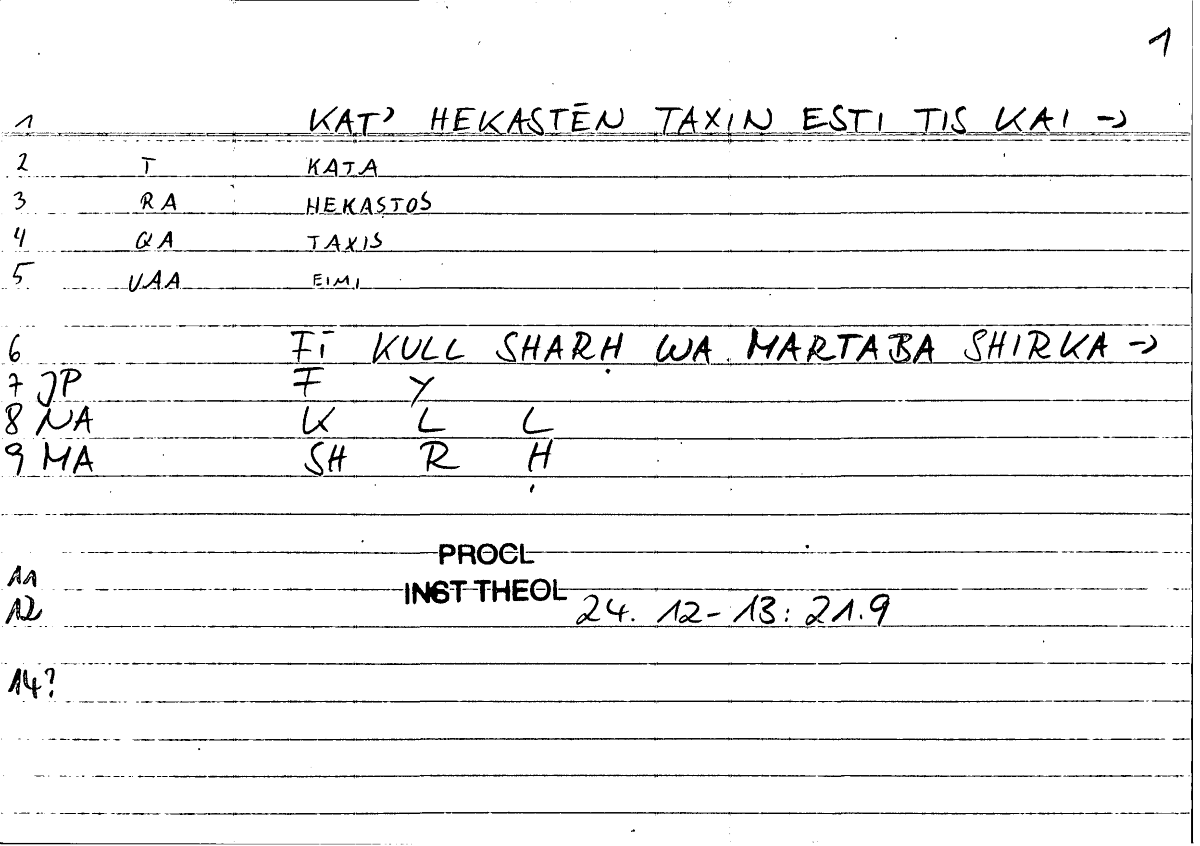 1
1 KAT' HEKASTĒN TAXIN ESTI TIS KAI →
2 T KATA
3 RA HEKASTOS
4 QA TAXIS
5 VAA EIMI
6 FĪ KULL SHARḤ WA MARTABA SHIRKA →
7 JP F Y
8 NA K L L
9 MA SH R Ḥ
PROCL
11 INST THEOL
12 24. 12-13: 21.9
14?